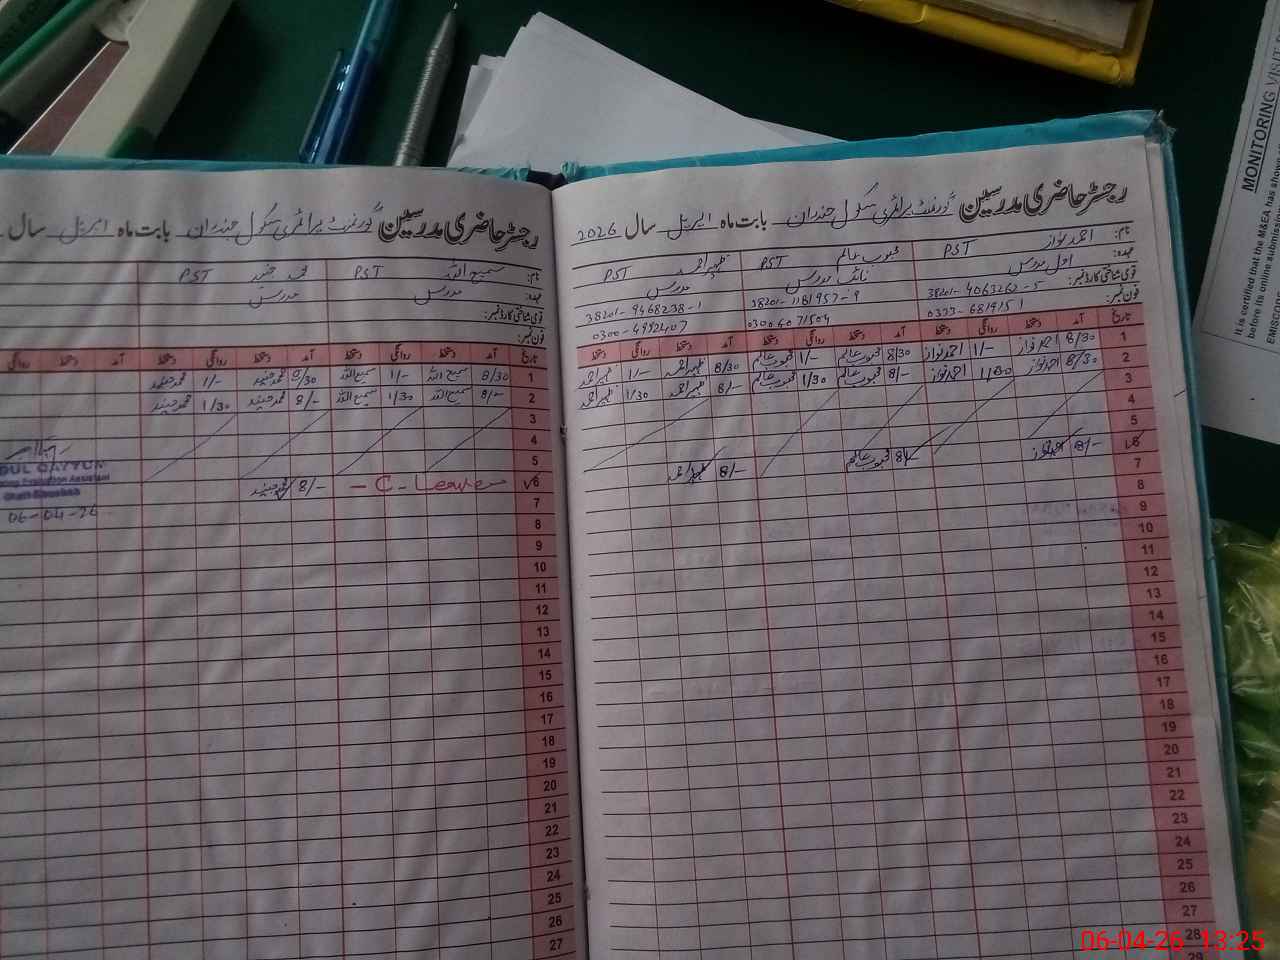 رجسٹر حاضری مدرسین گورنمنٹ پرائمری سکول جندران بابت ماہ اپریل سال 2026
نام: احمد نواز PST محبوب عالم PST ظہیر احمد PST
عہدہ: اول مدرس نائب مدرس مدرس
قومی شناختی کارڈ نمبر: 38201-4063262-5 38201-1181957-9 38201-9468238-1
فون نمبر: 0333-6819151 03004071504 0300-4992407
تاریخ آمد دستخط روانگی دستخط آمد دستخط روانگی دستخط آمد دستخط روانگی دستخط
1 8/30 احمد نواز 1/- احمد نواز 8/30 محبوب عالم 1/- محبوب عالم 8/30 ظہیر احمد 1/- ظہیر احمد
2 8/30 احمد نواز 1/30 احمد نواز 8/- محبوب عالم 1/30 محبوب عالم 8/- ظہیر احمد 1/30 ظہیر احمد
3
4
6 8/- احمد نواز 8/- محبوب عالم 8/- ظہیر احمد
7
8
9
10
11
12
13
14
15
16
17
18
19
20
21
22
23
24
25
26
27
28
29
رجسٹر حاضری مدرسین گورنمنٹ پرائمری سکول جندران بابت ماہ اپریل سال
نام: سمیع اللہ PST محمد جنید PST
عہدہ: مدرس مدرس
قومی شناختی کارڈ نمبر:
فون نمبر:
تاریخ آمد دستخط روانگی دستخط آمد دستخط روانگی دستخط آمد دستخط روانگی
1 8/30 سمیع اللہ 1/- سمیع اللہ 8/30 محمد جنید 1/- محمد جنید
2 8/- سمیع اللہ 1/30 سمیع اللہ 8/- محمد جنید 1/30 محمد جنید
3
4
5
6 - C - Leave 8/- محمد جنید
7
8
9
10
11
12
13
14
15
16
17
18
19
20
21
22
23
24
25
26
27
DUL QAYYUM
Evaluation Assistant
06-04-26
MONITORING VISIT
It is certified that the M&EA has show
before its online submiss
EMISCODE
06-04-26 13:25